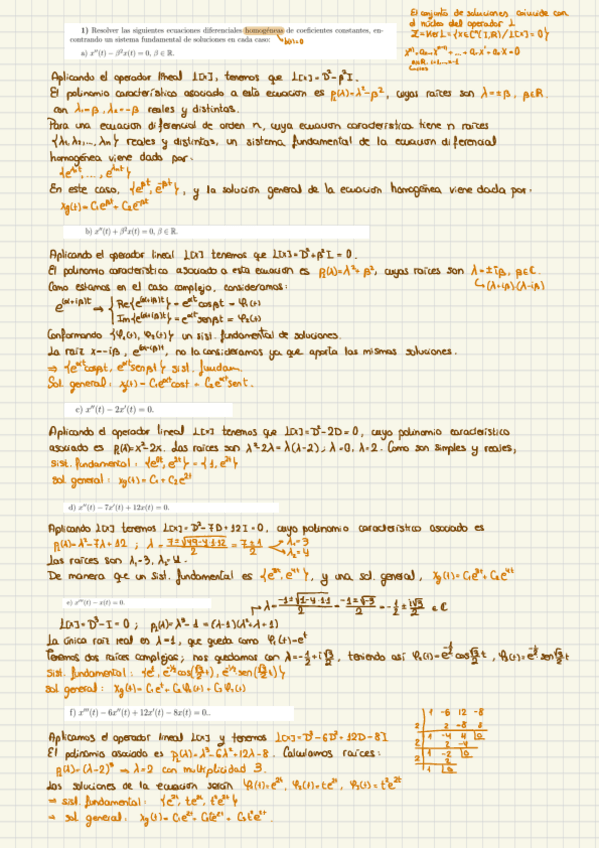 El conjunto de soluciones coincide con
el núcleo del operador L
1) Resolver las siguientes ecuaciones diferenciales homogéneas de coeficientes constantes, en-
contrando un sistema fundamental de soluciones en cada caso:
b(t)=0
a) x''(t) − β²x(t) = 0, β ∈ ℝ.
Aplicando el operador lineal L[x], tenemos que L[x]=D²-β²I.
El polinomio característico asociado a esta ecuación es P₂(λ)=λ²-β², cuyas raíces son λ=±β, β∈ℝ
con λ₁=β, λ₂=-β reales y distintas.
Para una ecuación diferencial de orden n, cuya ecuación característica tiene n raíces
{λ₁,λ₂,...,λn} reales y distintas, un sistema fundamental de la ecuación diferencial
homogénea viene dada por:
En este caso, {e^βt, e^-βt}, y la solución general de la ecuación homogénea viene dada por:
xg(t)=C₁e^βt+C₂e^-βt
b) x''(t) + β²x(t) = 0, β ∈ ℝ.
Aplicando el operador lineal L[x] tenemos que L[x]=D²+β²I=0.
El polinomio característico asociado a esta ecuación es P₂(λ)=λ²+β², cuyas raíces son λ=±iβ, β∈ℂ.
(λ+iβ)(λ-iβ)
Como estamos en el caso complejo, consideramos:
e^(α+iβ)t ⇒ Re{e^(α+iβ)t} = e^αt cosβt = φ₁(t)
Im{e^(α+iβ)t} = e^αt senβt = φ₂(t)
Conformando {φ₁(t), φ₂(t)} un sist. fundamental de soluciones.
La raíz x=-iβ, no la consideramos ya que aporta las mismas soluciones.
⇒ {e^αt cosβt, e^αt senβt} sist. fundam.
Sol. general: xg(t)=C₁e^αt cost + C₂e^αt sent.
c) x''(t) − 2x'(t) = 0.
Aplicando el operador lineal L[x] tenemos que L[x]=D²-2D=0, cuyo polinomio característico
asociado es P₂(λ)=x²-2x. Las raíces son λ²-2λ=λ(λ-2); λ=0, λ=2. Como son simples y reales,
sist. fundamental: {e^0t, e^2t} = {1, e^2t}
sol general: xg(t)=C₁+C₂e^2t
d) x''(t) − 7x'(t) + 12x(t) = 0.
Aplicando L[x] tenemos L[x]=D²-7D+12I=0, cuyo polinomio característico asociado es
P₂(λ)=λ²-7λ+12 ; λ = (7±√(49-4·1·12))/2 = (7±1)/2 λ₁=3
λ₂=4
Las raíces son λ₁=3, λ₂=4.
De manera que un sist. fundamental es {e^3t, e^4t}, y una sol. general, xg(t)=C₁e^3t+C₂e^4t
e) x'''(t) − x(t) = 0.
λ = (-1±√(1-4·1·1))/2 = (-1±√-3)/2 = -1/2 ± i√3/2 ∈ ℂ
L[x]=D³-I=0 ; P₃(λ)=λ³-1=(λ-1)(λ²+λ+1)
La única raíz real es λ=1, que queda como φ₁(t)=e^t
Tenemos dos raíces complejas; nos quedamos con λ=-1/2+i√3/2, teniendo así φ₂(t)=e^-t/2 cos√3/2 t, φ₃(t)=e^-t/2 sen√3/2 t
Sist. fundamental: {e^t, e^-t/2 cos(√3/2 t), e^-t/2 sen(√3/2 t)}
f) x'''(t) − 6x''(t) + 12x'(t) − 8x(t) = 0..
Aplicamos el operador lineal L[x] y tenemos L[x]=D³-6D²+12D-8I
El polinomio asociado es P₃(λ)=λ³-6λ²+12λ-8. Calculamos raíces:
P₃(λ)=(λ-2)³ ⇒ λ=2 con multiplicidad 3.
1 -6 12 -8
2 2 -8 8
1 -4 4 0
2 2 -4
1 -2 0
2 2
1 0
Las soluciones de la ecuación serán φ₁(t)=e^2t, φ₂(t)=te^2t, φ₃(t)=t²e^2t
⇒ sist. fundamental: {e^2t, te^2t, t²e^2t}
⇒ sol general: xg(t)=C₁e^2t+C₂te^2t+C₃t²e^2t